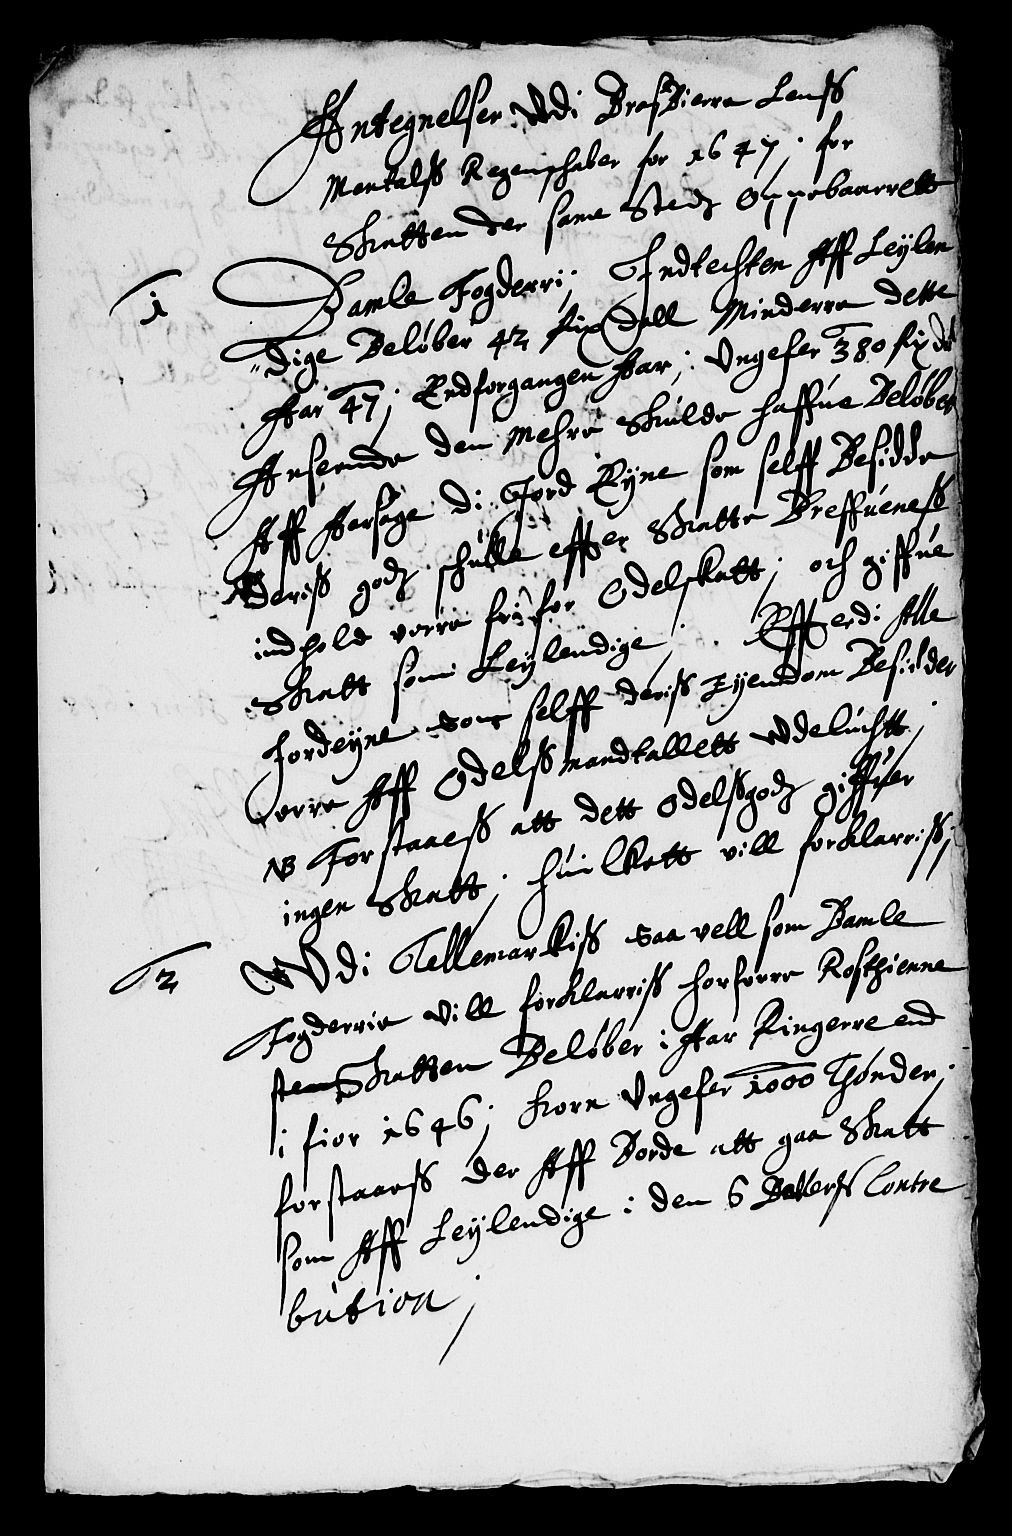 Antegnelser Udi Bratzbierre Lenss
Mentalss Regenschaber for 1647; for
Skatten der same Stedz Oppebaarrett
1 Bamle Fogderri; Indtechten Aff Leÿlen
dige Beløber 42 rix Dall Minderre dette
Aar 47; End forgangen Aar; Ungefer 380 rix dr
Anseende den Mehre skulde haffue Beløbet
Aff Aarsage di Jord Eÿne som selff Besidde
deriss godz schulle effter Skatte Breffueness
indhold verre fri for Odelskatt; och giffue
Skatt som Leÿlendige; Effterdi Alle
Jordeÿne som selff deriss Eÿendom Besidder
verre Aff Odelss mandtallett Udeluchtt;
NB Forstaaess att dett Odelssgodz giffuer
ingen Skatt; huilkett vill forklarriss;
2 Udi Tellemarkiss saa vell som Bamle
Fogderrie vill forklarriss horforre Rosthienne
Skatten Beløber i Aar Ringerre end
i fior 1646; korn Ungefer 1000 Thønder;
forstaaess der Aff Borde att gaa Skatt
som Aff Leÿlendige i den 6 Dallerss Contre
bution;